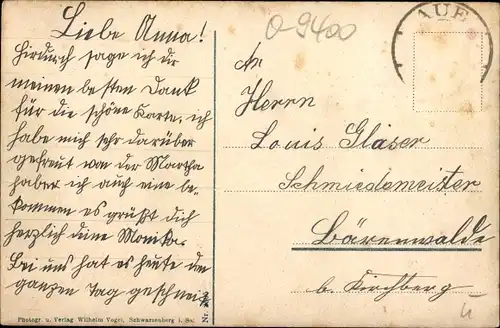 Liebe Anna!
Hirdurch sage ich dir
meinen besten Dank
für die schöne Karte, ich
habe mich sehr darüber
gefreut von der Martha
haber ich auch eine be-
kommen es grüßt dich
herzlich deine Monika.
Bei uns hat es heute den
ganzen Tag geschneit
Photogr. u. Verlag Wilhelm Vogel, Schwarzenberg i. Sa.
Nr.
O-9400
AUE
An
Herrn
Louis Gläser
Schmiedemeister
Bärenwalde
b. Kirchberg